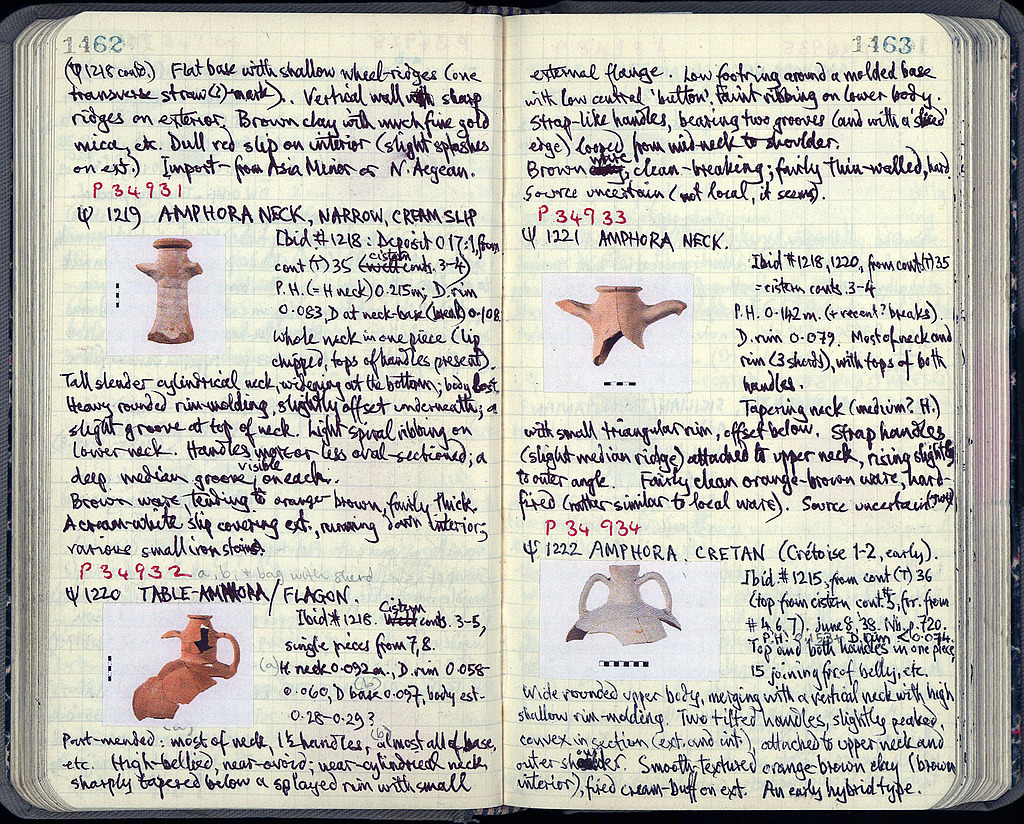 1462
(Ψ 1218 contd.) Flat base with shallow wheel-ridges (one
transverse straw(?)-mark). Vertical wall with sharp
ridges on exterior. Brown clay with much fine gold
mica, etc. Dull red slip on interior (slight splashes
on ext.) Import - from Asia Minor or N. Aegean.
P 34931
Ψ 1219 AMPHORA NECK, NARROW, CREAM SLIP
Ibid #1218: Deposit O 17:1, from
cont (T) 35 (well cistern conts. 3-4)
P.H. (= H neck) 0.215m; D. rim
0.083, D at neck-base (break) 0.108
whole neck in one piece (lip
chipped, tops of handles present).
Tall slender cylindrical neck, widening at the bottom; body lost.
Heavy rounded rim-molding, slightly offset underneath; a
slight groove at top of neck. Light spiral ribbing on
lower neck. Handles more or less oval-sectioned; a
deep median groove visible on each.
Brown ware, tending to orange-brown, fairly thick.
A cream-white slip covering ext., running down interior;
various small iron stains.
P 34932 a, b, + bag with sherd
Ψ 1220 TABLE-AMPHORA/FLAGON.
Ibid #1218. Well Cistern conts. 3-5,
single pieces from 7, 8.
(a) H neck 0.092m., D. rim 0.058-
0.060, D base (b) 0.097, body est.
0.28-0.29?
(a) (b)
Part-mended: most of neck, 1½ handles, almost all of base,
etc. High-bellied, near-ovoid; near-cylindrical neck
sharply tapered below a splayed rim with small
1463
external flange. Low footring around a molded base
with low central 'button'. Faint ribbing on lower body.
Strap-like handles, bearing two grooves (and with a sliced
edge) looped from mid-neck to shoulder.
Brown ware, clean-breaking; fairly thin-walled, hard.
Source uncertain (not local, it seems).
P 34933
Ψ 1221 AMPHORA NECK.
Ibid #1218, 1220, from cont. (T) 35
= cistern conts. 3-4
P.H. 0.142 m. (+ recent? breaks).
D. rim 0.079. Most of neck and
rim (3 sherds), with tops of both
handles.
Tapering neck (medium? H.)
with small triangular rim, offset below. Strap handles
(slight median ridge) attached to upper neck, rising slightly
to outer angle. Fairly clean orange-brown ware, hard-
fired (rather similar to local ware). Source uncertain.
P 34934
Ψ 1222 AMPHORA, CRETAN (Crétoise 1-2, early).
Ibid #1215, from cont (T) 36
(top from cistern cont. 5, frr. from
#4, 6, 7). June 8, 38. Nb. p. 720.
P.H. 0.153+ D. rim < 0.074.
Top and both handles in one piece,
15 joining frr of belly, etc.
Wide rounded upper body, merging with a vertical neck with high
shallow rim-molding. Two tilted handles, slightly peaked,
convex in section (ext. and int), attached to upper neck and
outer shoulder. Smooth-textured orange-brown clay (brown
interior), fired cream-buff on ext. An early hybrid type.